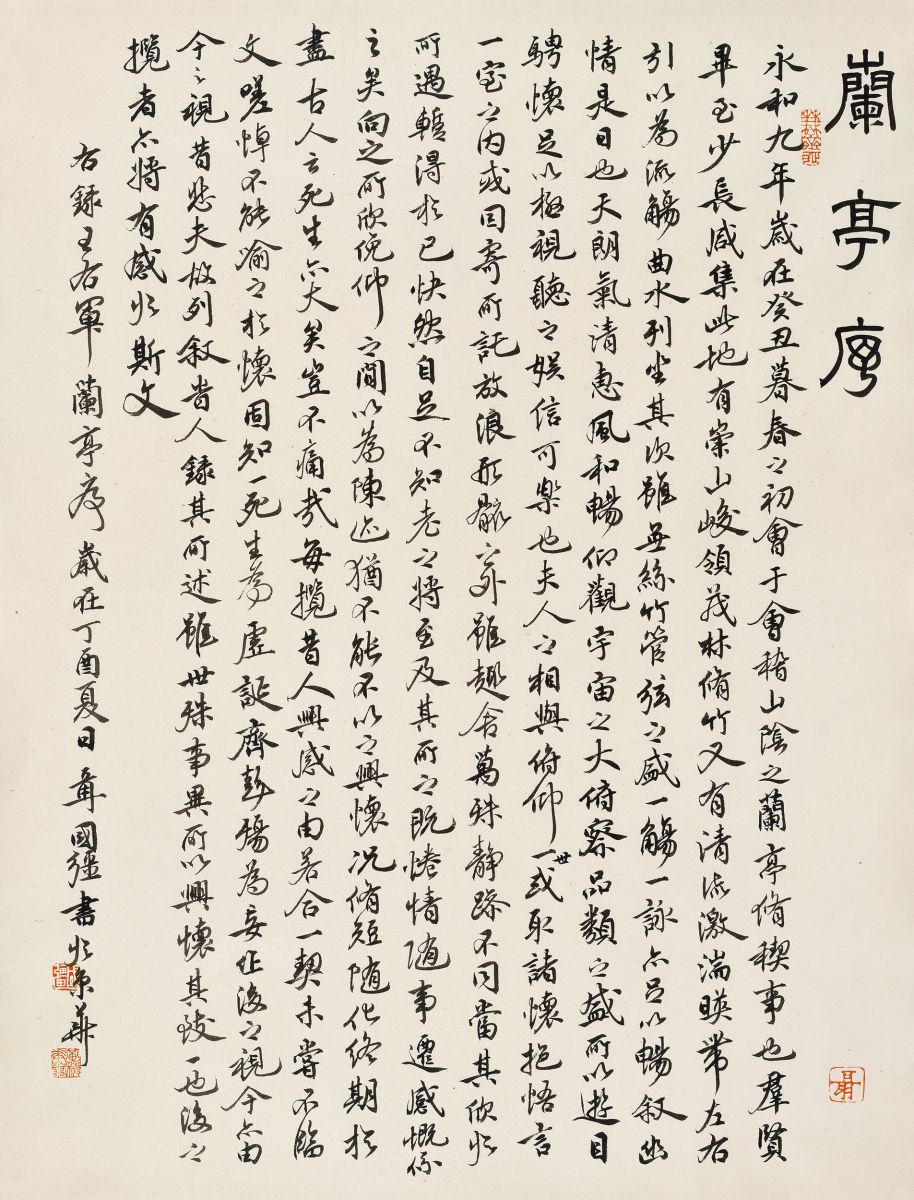 蘭亭序
永和九年歲在癸丑暮春之初會于會稽山陰之蘭亭脩稧事也羣賢
畢至少長咸集此地有崇山峻領茂林脩竹又有清流激湍暎帶左右
引以為流觴曲水列坐其次雖無絲竹管弦之盛一觴一詠亦足以暢叙幽
情是日也天朗氣清惠風和暢仰觀宇宙之大俯察品類之盛所以遊目
騁懷足以極視聽之娛信可樂也夫人之相與俯仰一世或取諸懷抱悟言
一室之内或因寄所託放浪形骸之外雖趣舍萬殊靜躁不同當其欣於
所遇蹔得於己快然自足不知老之將至及其所之既惓情随事遷感慨係
之矣向之所欣俛仰之間以為陳迹猶不能不以之興懷况脩短随化終期於
盡古人云死生亦大矣豈不痛哉每攬昔人興感之由若合一契未嘗不臨
文嗟悼不能喻之於懷固知一死生為虛誕齊彭殤為妄作後之視今亦由
今之視昔悲夫故列叙時人錄其所述雖世殊事異所以興懷其致一也後之
攬者亦將有感於斯文
右錄王右軍蘭亭序歲在丁酉夏日國彊書於京華